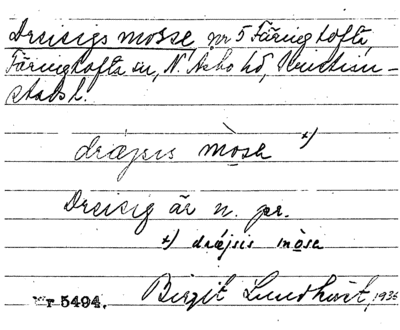 Dreisigs mosse, nr 5 Färingtofta,
Färingtofta sn, N. Åsbo hd, Kristian-
stads l.
dræjsis mòsa x)
Dreisig är n. pr.
x) dræjsis mosa
Nr 5494. Birgit Lundkvist, 1935